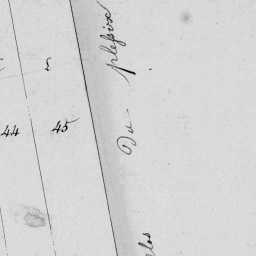 44
45
Du plessix